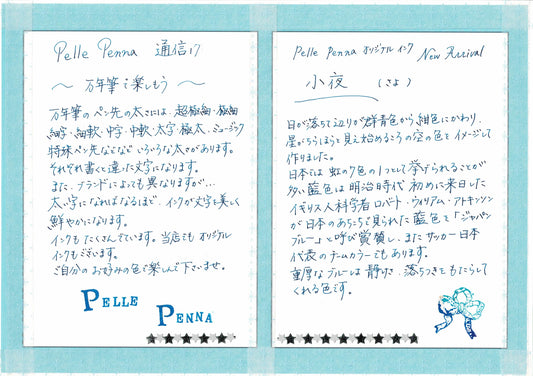 Pelle Penna 通信17
〜 万年筆で楽しもう 〜
万年筆のペン先の太さには、超極細・極細
細字・細軟・中字・中軟・太字・極太・ミュージック
特殊ペン先などなど いろいろな太さがあります。
それぞれ書くと違った文字になります。
また、ブランドによっても異なりますが…
太い字になればなるほど、インクが文字を美しく
鮮やかになります。
インクもたくさんでています。当店でも オリジナル
インクもございます。
ご自分のお好みの色で楽しんで下さいませ。
PELLE
PENNA
Pelle Penna オリジナル インク New Arrival
小夜 (さよ)
日が落ちて辺りが群青色から紺色にかわり、
星がちらほらと見え始めるころの空の色をイメージして
作りました。
日本では 虹の7色の1つとして挙げられることが
多い藍色は 明治時代 初めに来日した
イギリス人科学者 ロバート・ウィリアム・アトキンソン
が日本のあちこちで見られた藍色を「ジャパン
ブルー」と呼び賞賛し、また サッカー日本
代表のチームカラーでもあります。
重厚なブルーは静けさ、落ちつきをもたらして
くれる色です。